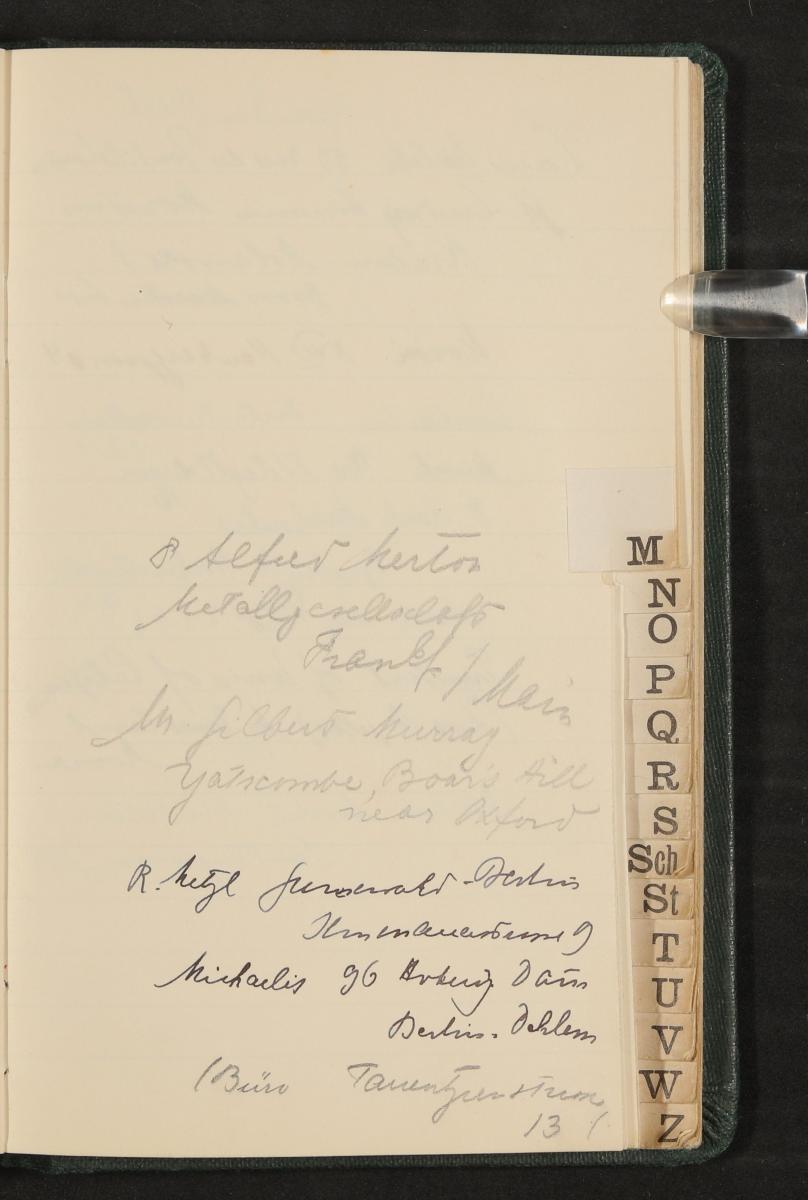 Alfred Merton
Metallgesellschaft
Frankf / Main
Mr. Gilbert Murray
Yatscombe, Boar's Hill
near Oxford
R. Metzl Grunewald-Berlin
9
Michaelis 96 Dam
Berlin-Dahlem
(Büro Tauentzienstrasse
13 (
M
N
O
P
Q
R
S
Sch
St
T
U
V
W
Z